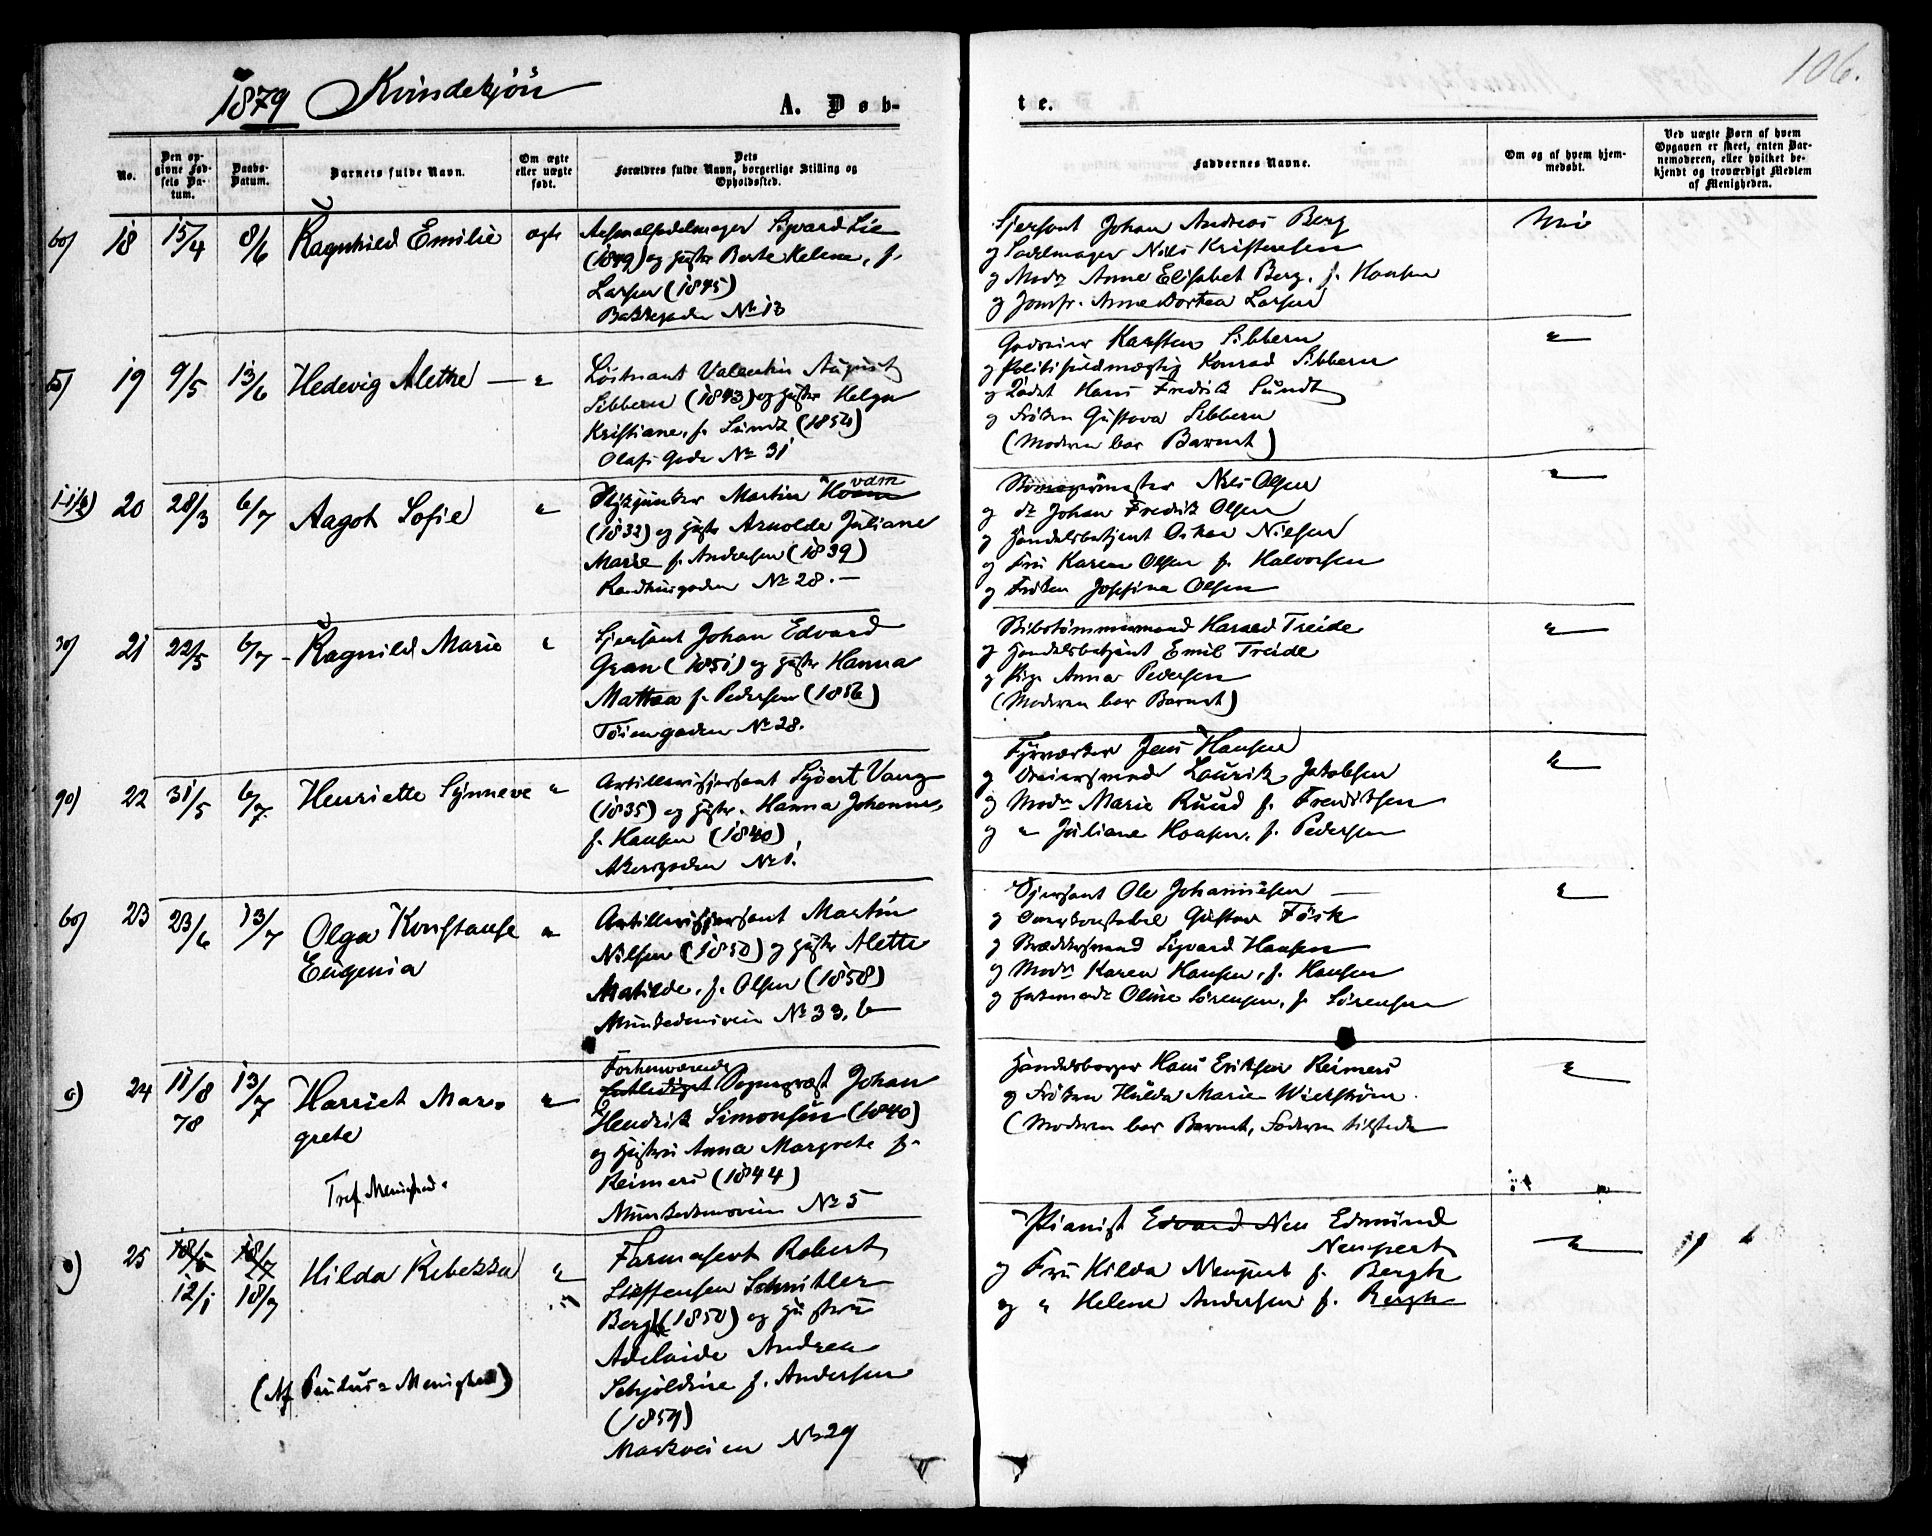 1879 Kvindekjön
A. Døb-
te.
106.
No.
Den opgivne Fødsels Datum.
Daabs-Datum.
Barnets fulde Navn.
Om ægte eller uægte født.
Dets Forældres fulde Navn, borgerlige Stilling og Opholdssted.
Faddernes Navne.
Om og af hvem hjemmedøbt.
Ved uægte Børn af hvem Opgaven er skeet, enten Barnemoderen, eller hvilket bekjendt og troværdigt Medlem af Menigheden.
60) 18 15/4 8/6 Ragnhild Emilie ægte
Sigvard Lie
(1849) og Hustr Berte Helene, f.
Larsen (1845)
Bakkegaden No 13
Sjersant Johan Andreas Berg
og Sadelmager Nils Kristensen
og Mad Anne Elisabet Berg, f. Hansen
og Jomfr. Anne Dortea Larsen
Nei
19 9/5 13/6 Hedevig Alethe — "
Löitnant Valentin August
Sibbern (1843) og Hustr Helga
Kristiane, f. Sundt (1854)
Olafs Gade No 31
Karsten Sibbern
og Politifuldmægtig Konrad Sibbern
og Kadet Hans Fredrik Sundt
og Fröken Gustava Sibbern
(Moderen bar Barnet)
"
20 28/3 6/7 Aagot Sofie "
Martin
(1832) og Hustr Arnolde Juliane
Marie f. Andersen (1839)
Raadhusgaden No 28. —
Nils Olsen
og do Johan Fredrik Olsen
og Handelsbetjent Oskar Nielsen
og Fru Karen Olsen f. Halvorsen
og Fröken Josefine Olsen
"
30) 21 22/5 6/7 Ragnild Marie "
Sjersant Johan Edvard
Gran (1851) og Hustr Hanna
Mathea f. Pedersen (1856)
Töiengaden No 28.
Skibstömmermand Harald Treide
og Handelsbetjent Emil Treide
og Pige Anna Pedersen
(Moderen bar Barnet)
"
90) 22 31/5 6/7 Henriette Synneve "
Artillerisjersant Syvert Vang
(1835) og Hustr. Hanna Johanne,
f. Hansen (1840)
Akersgaden No 1.
Fyrværker Jens Hansen
og Lauritz Jakobsen
og Mad Marie Ruud f. Fredriksen
og " Juliane Hansen, f. Pedersen
"
60) 23 23/6 13/7 Olga Konstanse "
Eugenia
Artillerisjersant Martin
Nilsen (1850) og Hustr Alette
Matilde, f. Olsen (1858)
Munkedamsveien No 33, b
Sjersant Ole Johannesen
og Overkonstabel Gustav Fösk
og Sigvard Hansen
og Mad Karen Hansen, f. Hansen
og Oline Sörensen, f. Sörensen
"
24 11/8 78 13/7 Harriet Mar-
grete
Tref. Menighed.
"
Forhenværende
Entlediget Sogneprest Johan
Hendrik Simonsen (1840)
og Hustru Anna Margrete f.
Reimers (1844)
Munkedamsveien No 5
Handelsborger Hans Eriksen Reimers
og Fröken Hulda Marie Wickström.
(Moderen bar Barnet, Faderen tilstede
"
25 18/5 12/1 18/7 18/7 Hilda Rebekka "
(Af Paulus Menighed)
Farmaseut Robert
Steffensen Schnitler
Bergh (1850) og Hustru
Adelaide Andrea
Schjoldine f. Andersen
(1854)
Markveien No 29
Pianist Edvard Neu Edmund
Neupert
og Fru Hilda Neupert f. Bergh
og " Helene Andersen f. Bergh
"